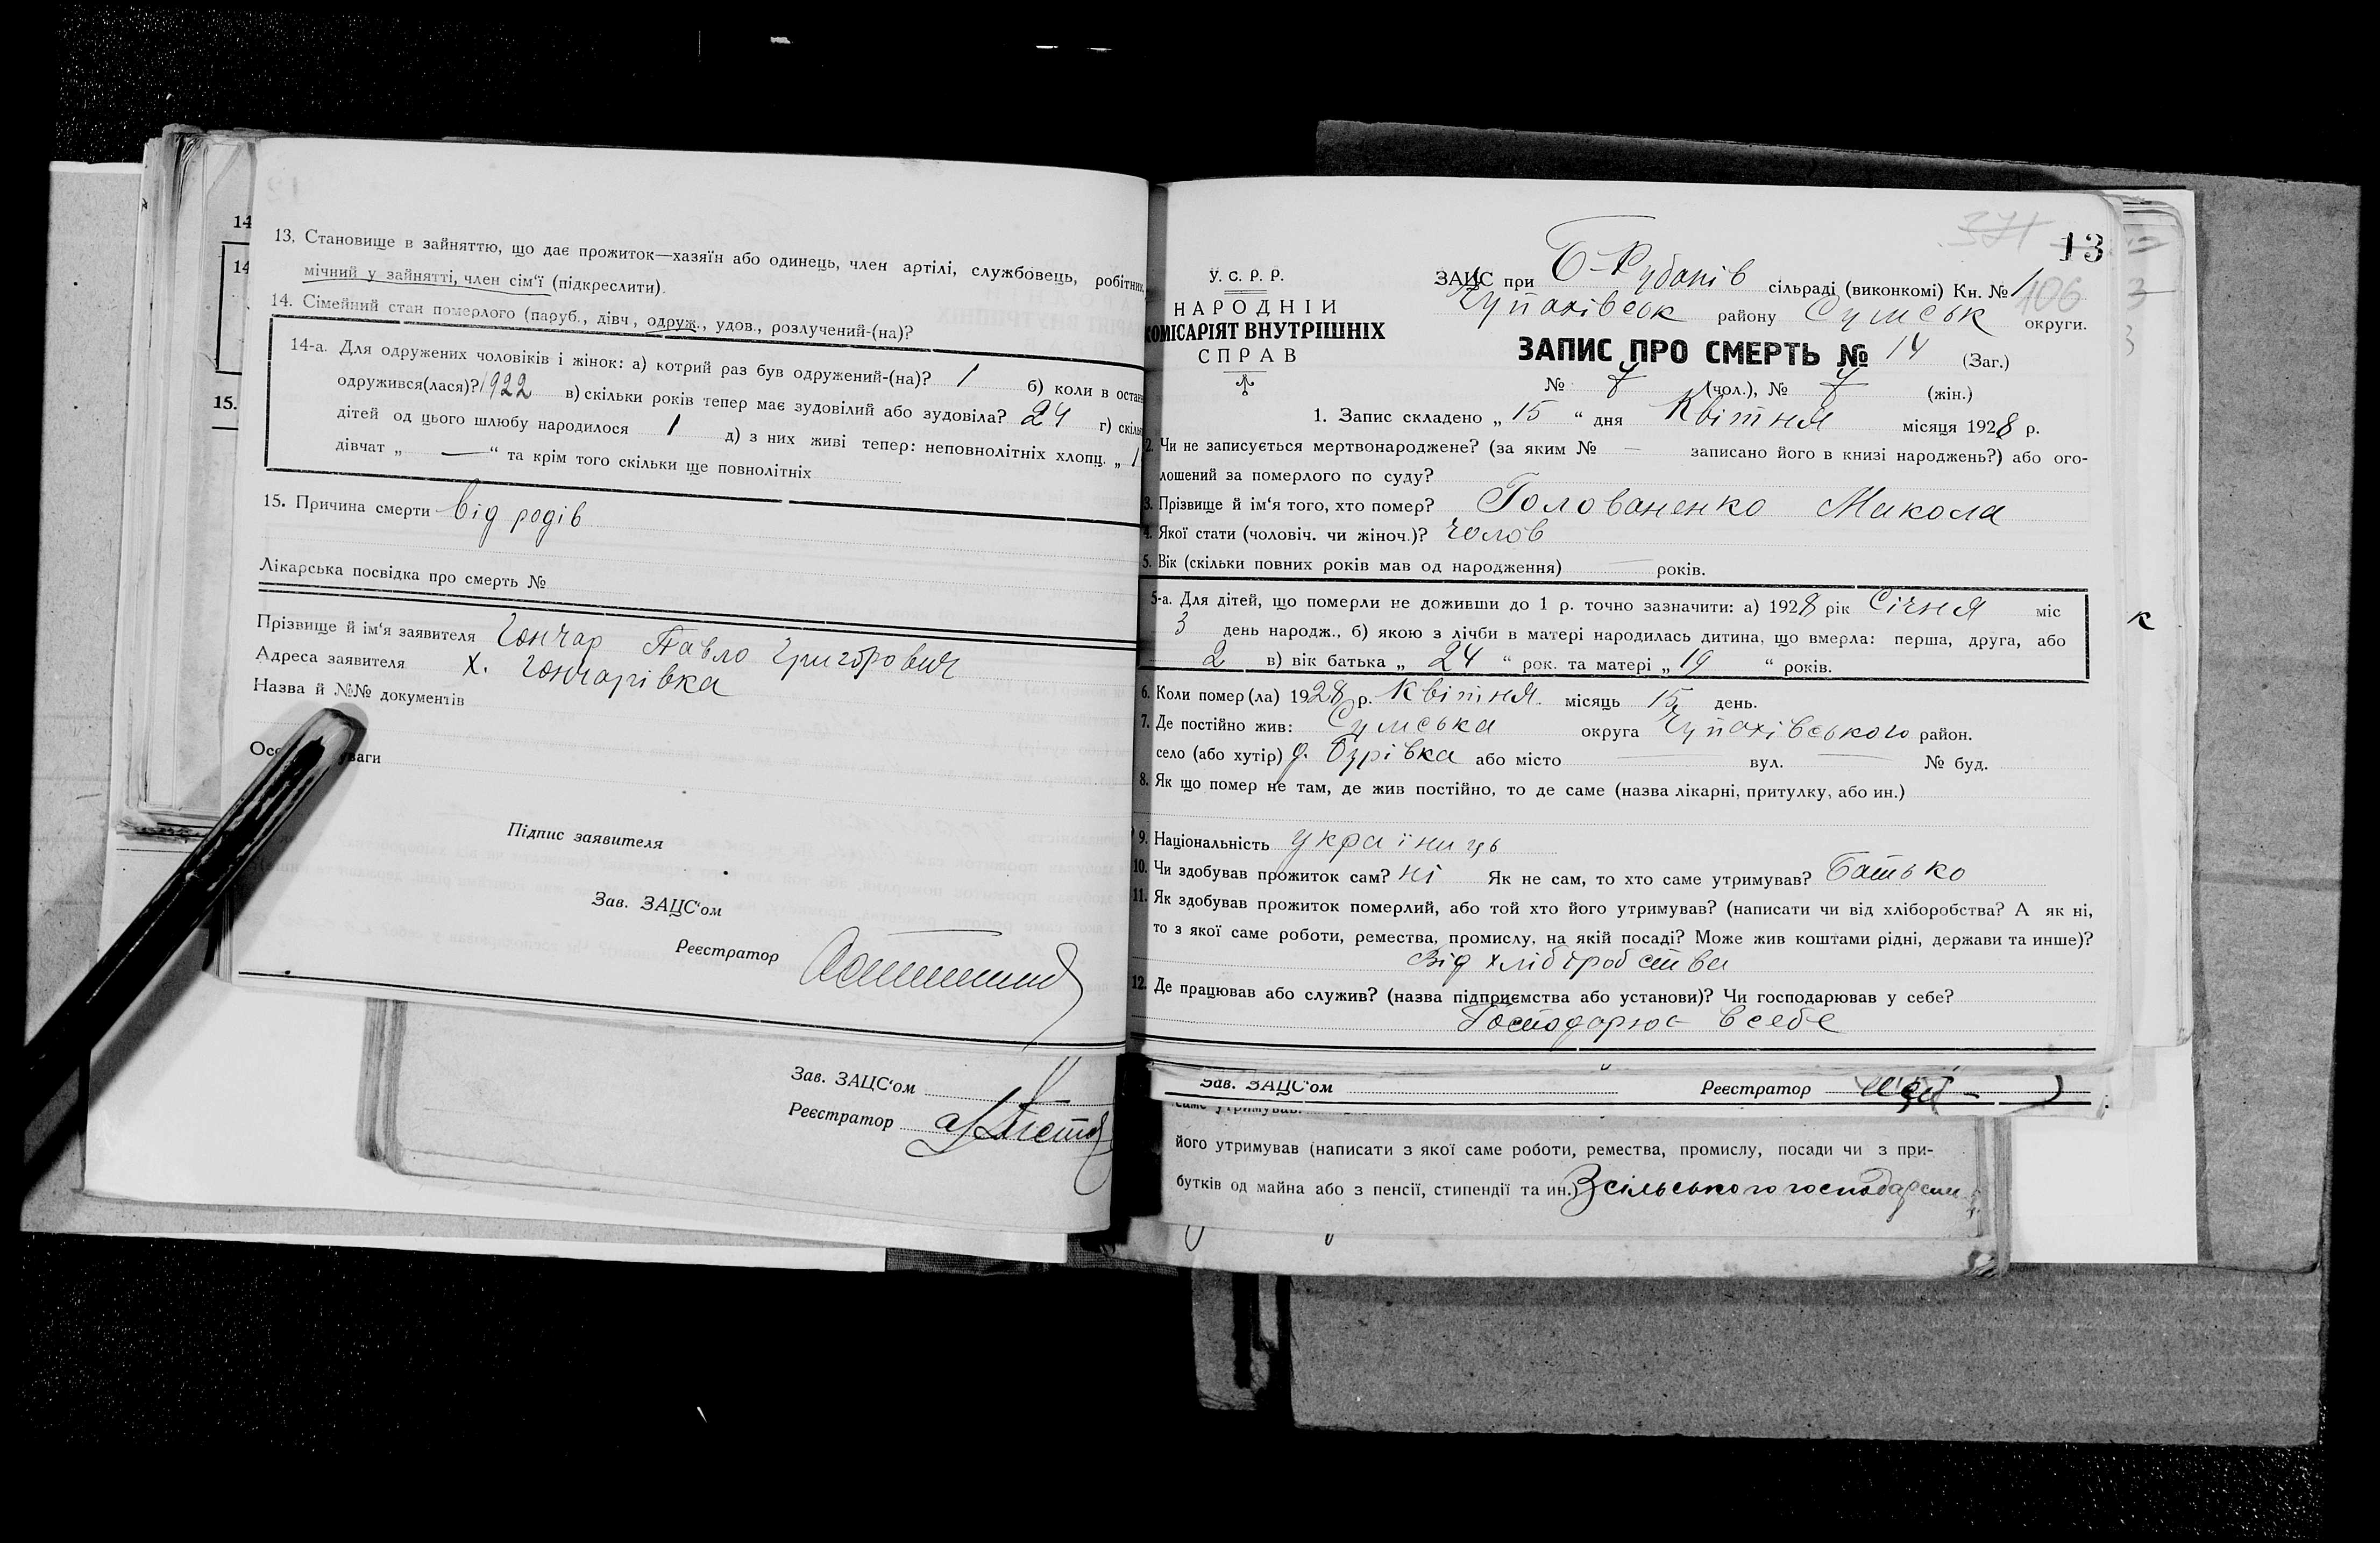 14
14
15.
13. Становище в зайняттю, що дає прожиток—хазяїн або одинець, член артілі, службовець, робітник,
мічний у зайнятті, член сім'ї (підкреслити).
14. Сімейний стан померлого (паруб., дівч., одруж., удов., розлучений-(на)?
14-а. Для одружених чоловіків і жінок: а) котрий раз був одружений-(на)? 1 б) коли в остан
одружився(лася)? 1922 в) скільки років тепер має зудовілий або зудовіла? 24 г) скіль
дітей од цього шлюбу народилося 1 д) з них живі тепер: неповнолітніх хлопц. „ 1
дівчат „ — “ та крім того скільки ще повнолітніх
15. Причина смерти від родів
Лікарська посвідка про смерть №
Прізвище й ім'я заявителя Гончар Павло Григорович
Адреса заявителя х. Гончарівка
Назва й №№ документів
Осо ваги
Підпис заявителя
Зав. ЗАЦС'ом
Реєстратор
Зав. ЗАЦС'ом
Реєстратор
13
106
У. С. Р. Р.
НАРОДНІЙ
КОМІСАРІЯТ ВНУТРІШНІХ
СПРАВ
ЗАЦС при Б-Рубанів сільраді (виконкомі) Кн. № 1
Чупахівськ району Сумськ округи.
ЗАПИС ПРО СМЕРТЬ № 14 (Заг.)
№ 7 (чол.), № 7 (жін.)
1. Запис складено „ 15 “ дня Квітня місяця 1928 р.
2. Чи не записується мертвонароджене? (за яким № — записано його в книзі народжень?) або ого-
лошений за померлого по суду?
3. Прізвище й ім'я того, хто помер? Голованенко Микола
4. Якої стати (чоловіч. чи жіноч.)? Чолов
5. Вік (скільки повних років мав од народження) — років.
5-а. Для дітей, що померли не доживши до 1 р. точно зазначити: а) 1928 рік Січня міс
3 день народж., б) якою з лічби в матері народилась дитина, що вмерла: перша, друга, або
2 в) вік батька „ 24 “ рок. та матері „ 19 “ років.
6. Коли помер(ла) 1928 р. Квітня. місяць 15 день.
7. Де постійно жив: Сумська округа Чупахівського район.
село (або хутір) або місто — вул. — № буд.
8. Як що помер не там, де жив постійно, то де саме (назва лікарні, притулку, або ин.)
9. Національність україниць
10. Чи здобував прожиток сам? ні Як не сам, то хто саме утримував? Батько
11. Як здобував прожиток померлий, або той хто його утримував? (написати чи від хліборобства? А як ні,
то з якої саме роботи, ремества, промислу, на якій посаді? Може жив коштами рідні, держави та инше)?
Від хліборобства
12. Де працював або служив? (назва підприємства або установи)? Чи господарював у себе?
Господарює в себе
Зав. ЗАЦС'ом Реєстратор
саме утримував.
його утримував (написати з якої саме роботи, ремества, промислу, посади чи з при-
бутків од майна або з пенсії, стипендії та ин.) З сільського господарств
к